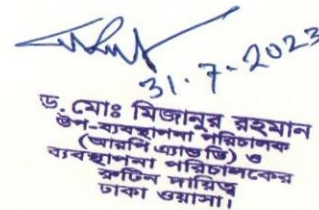 31.7-2023
ড. মোঃ মিজানুর রহমান
উপ-ব্যবস্থাপনা পরিচালক
(আরপি এ্যান্ড ডি) ও
ব্যবস্থাপনা পরিচালকের
রুটিন দায়িত্ব
ঢাকা ওয়াসা।